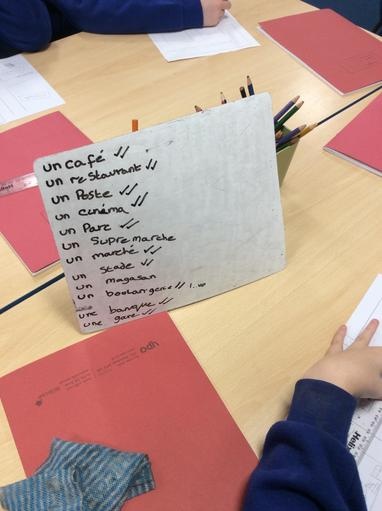 un café ✓✓
un restaurant ✓✓
un Poste ✓✓
un cinéma ✓✓
un Parc ✓✓
un Supremarche
un marché ✓✓
un Stade ✓✓
un magasan
un boulangerie ✓✓
une banque ✓✓
une gare ✓✓